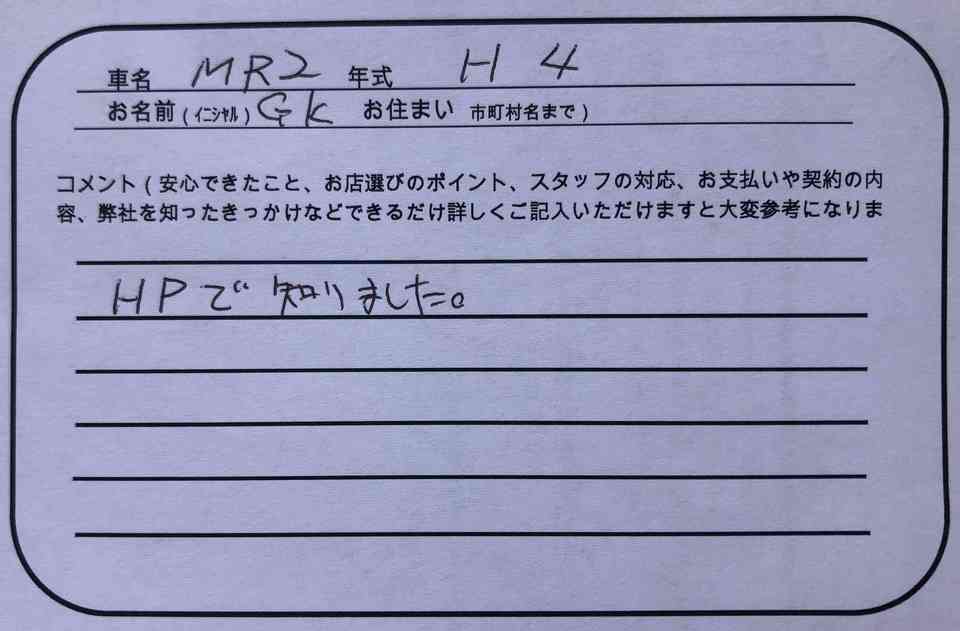 車名 MR2 年式 H 4
お名前(イニシャル) GK お住まい 市町村名まで)
コメント(安心できたこと、お店選びのポイント、スタッフの対応、お支払いや契約の内
容、弊社を知ったきっかけなどできるだけ詳しくご記入いただけますと大変参考になりま
HPで知りました。